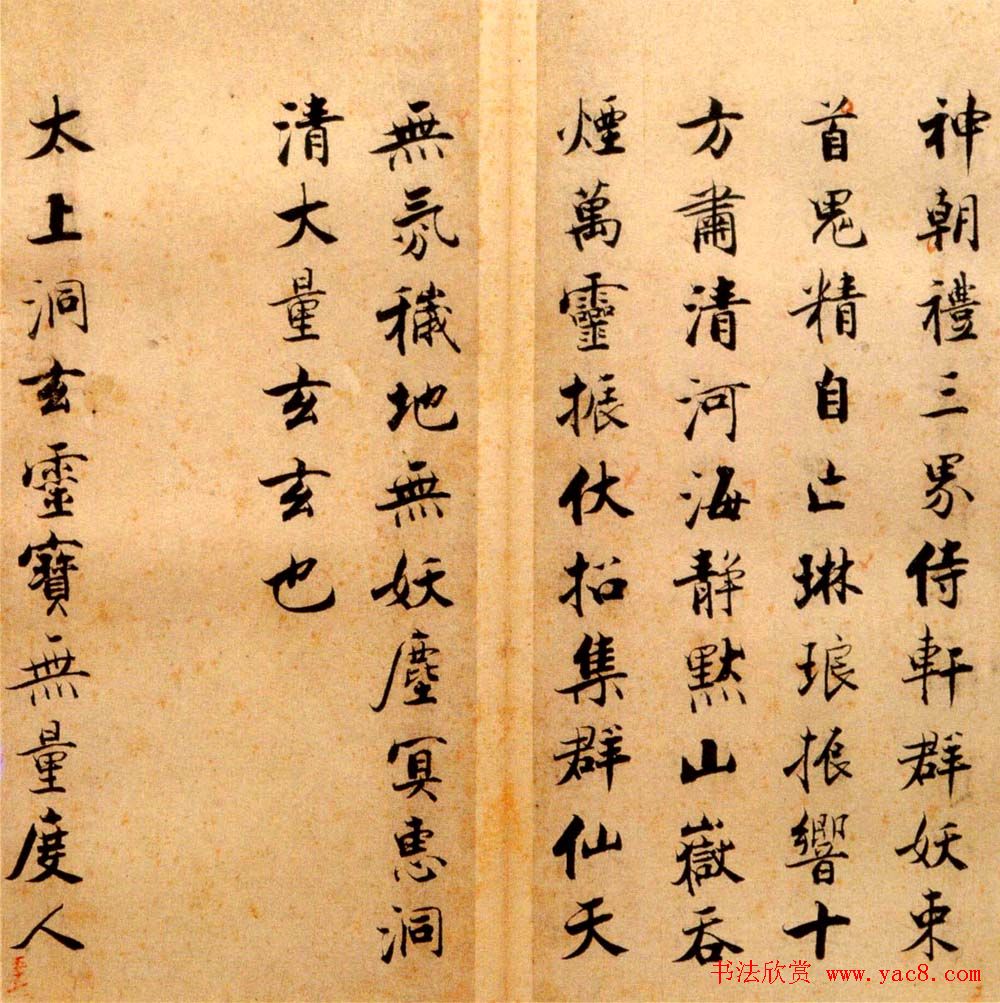 神朝禮三界侍軒群妖束
首鬼精自亡琳琅振響十
方肅清河海静默山嶽吞
煙萬靈振伏招集群仙天
無氛穢地無妖塵冥惠洞
清大量玄玄也
太上洞玄靈寶無量度人
书法欣赏 www.yac8.com